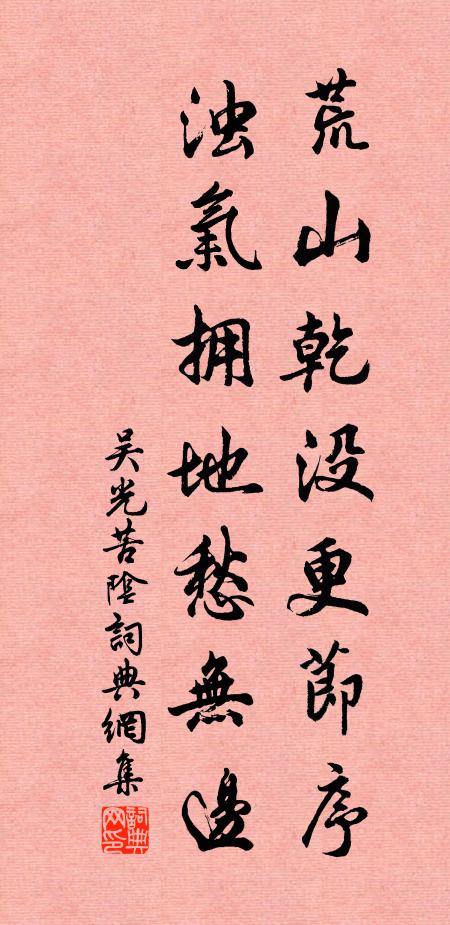 荒山乾没更節序
浊氣拥地愁無邊
吴光苦陰詞典網集
詞典网印